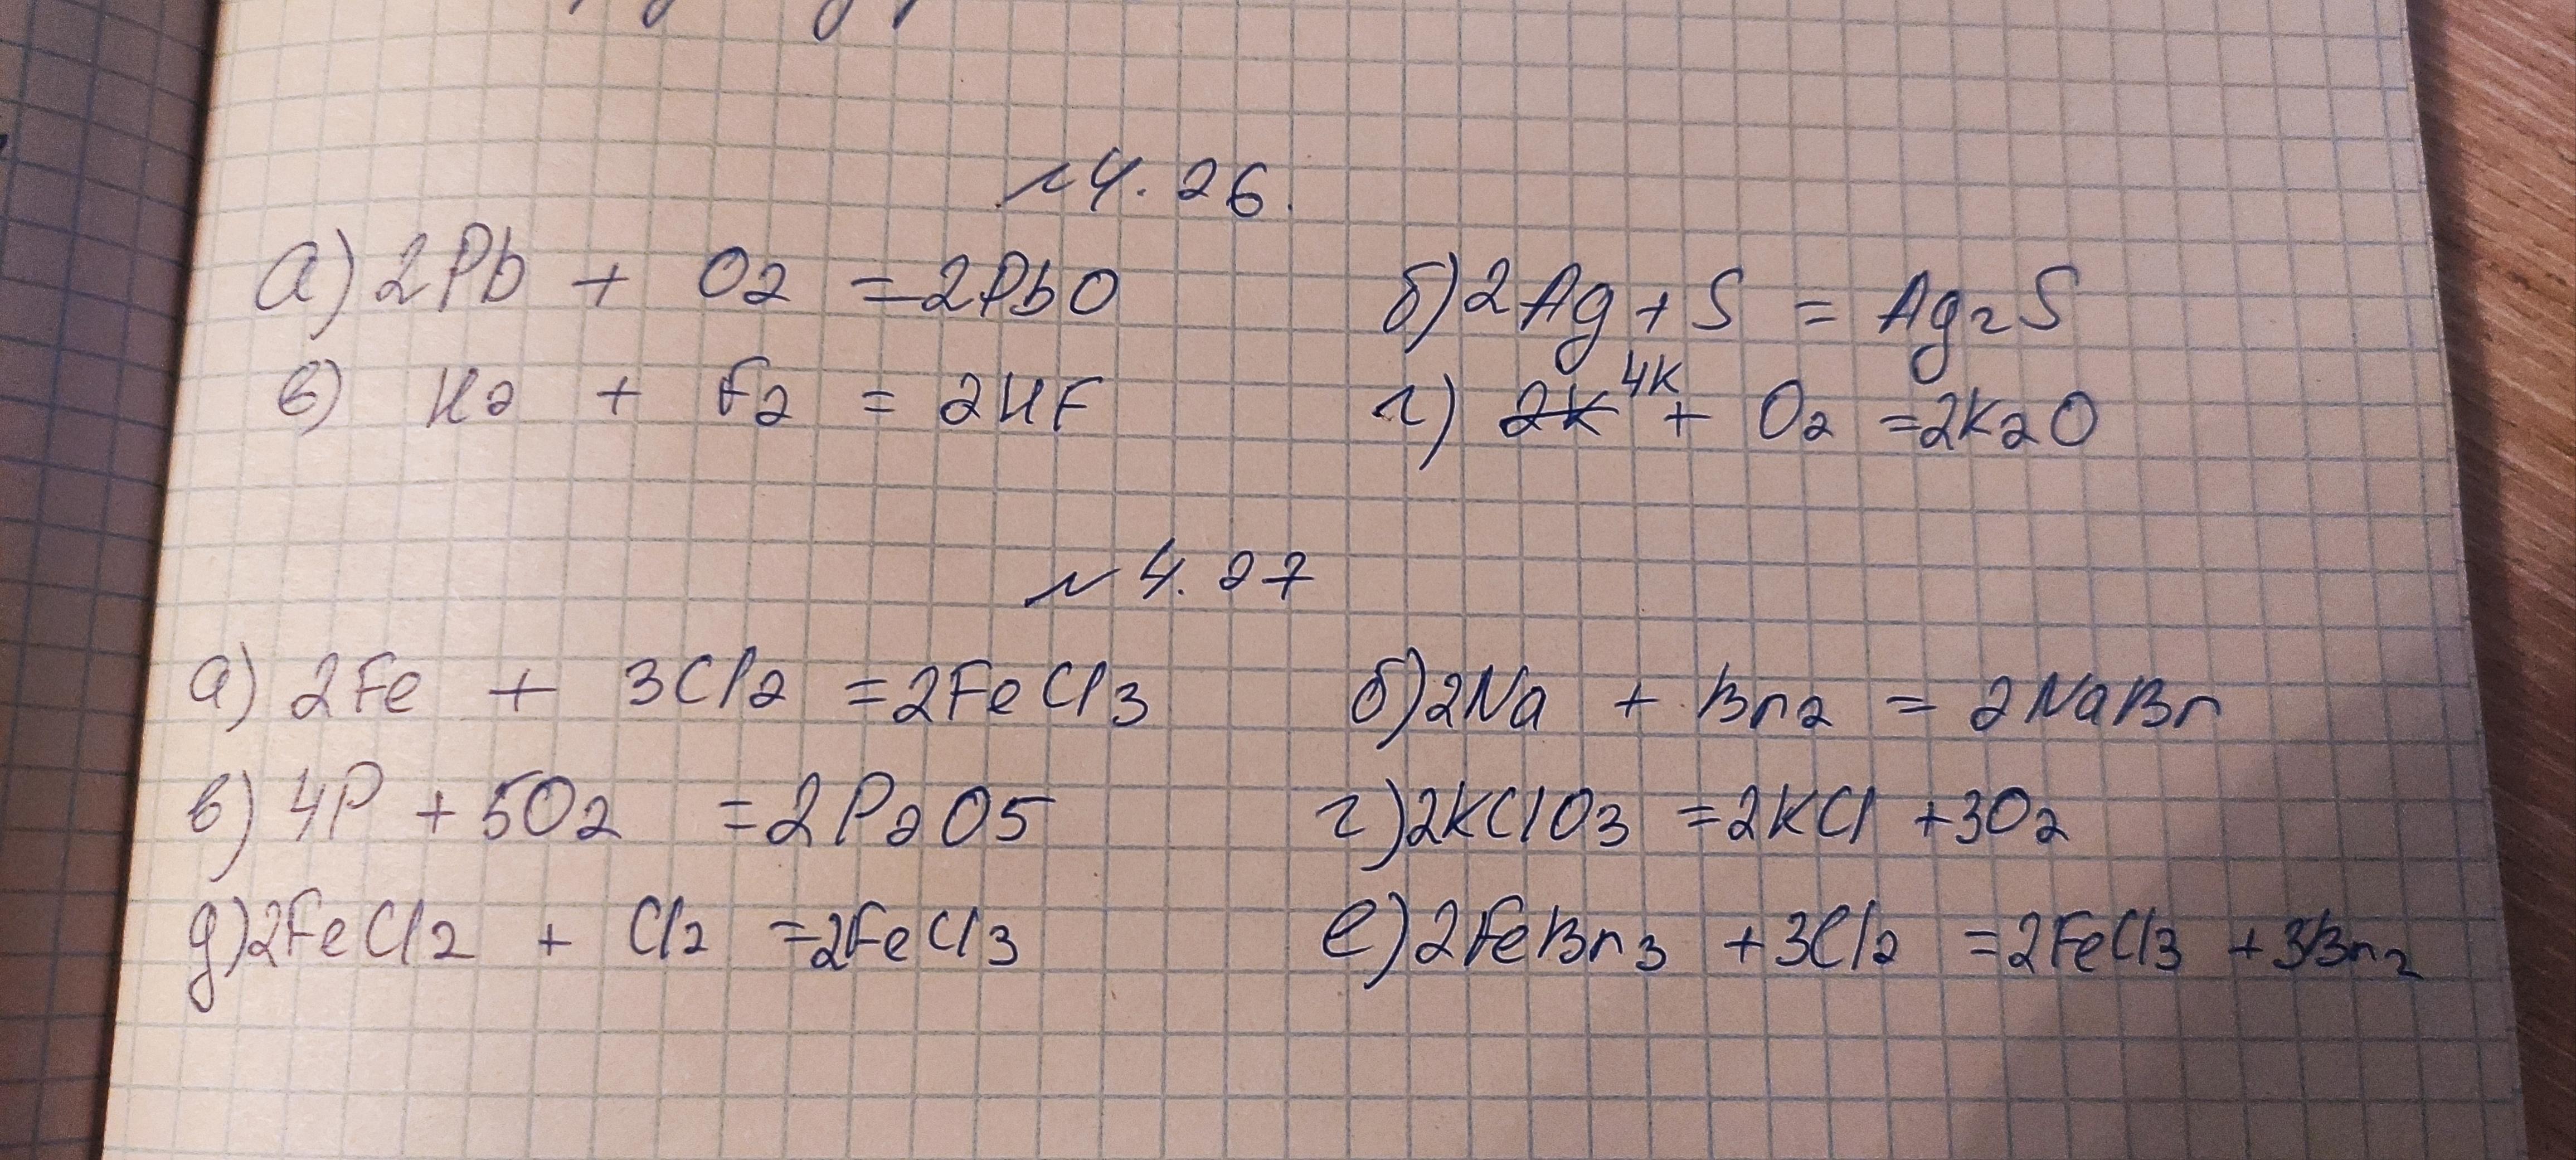 №4.26.
а) 2Pb + O2 = 2PbO б) 2Ag + S = Ag2S
в) H2 + F2 = 2HF г) 2K 4K + O2 = 2K2O
№4.27
а) 2Fe + 3Cl2 = 2FeCl3 б) 2Na + Br2 = 2NaBr
в) 4P + 5O2 = 2P2O5 г) 2KClO3 = 2KCl + 3O2
д) 2FeCl2 + Cl2 = 2FeCl3 е) 2FeBr3 + 3Cl2 = 2FeCl3 + 3Br2